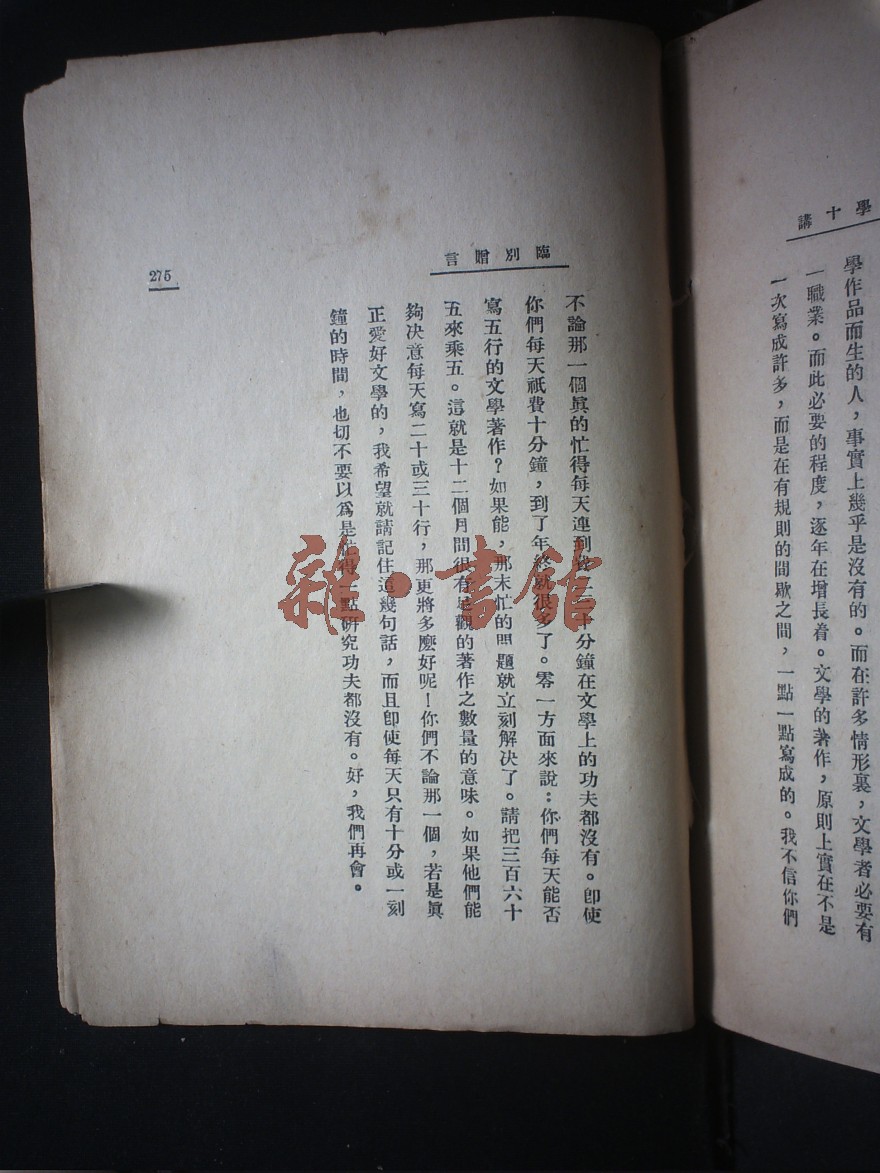 學十講
學作品而生的人，事實上幾乎是沒有的。而在許多情形裏，文學者必要有
一職業。而此必要的程度，逐年在增長着。文學的著作，原則上實在不是
一次寫成許多，而是在有規則的間歇之間，一點一點寫成的。我不信你們
臨別贈言
275
不論那一個眞的忙得每天連到二三十分鐘在文學上的功夫都沒有。卽使
你們每天祇費十分鐘，到了年終就很多了。零一方面來說：你們每天能否
寫五行的文學著作？如果能，那末忙的問題就立刻解決了。請把三百六十
五來乘五。這就是十二個月間很有足觀的著作之數量的意味。如果他們能
夠決意每天寫二十或三十行，那更將多麼好呢！你們不論那一個，若是眞
正愛好文學的，我希望就請記住這幾句話，而且卽使每天只有十分或一刻
鐘的時間，也切不要以爲是忙得一點研究功夫都沒有。好，我們再會。
雜·書館